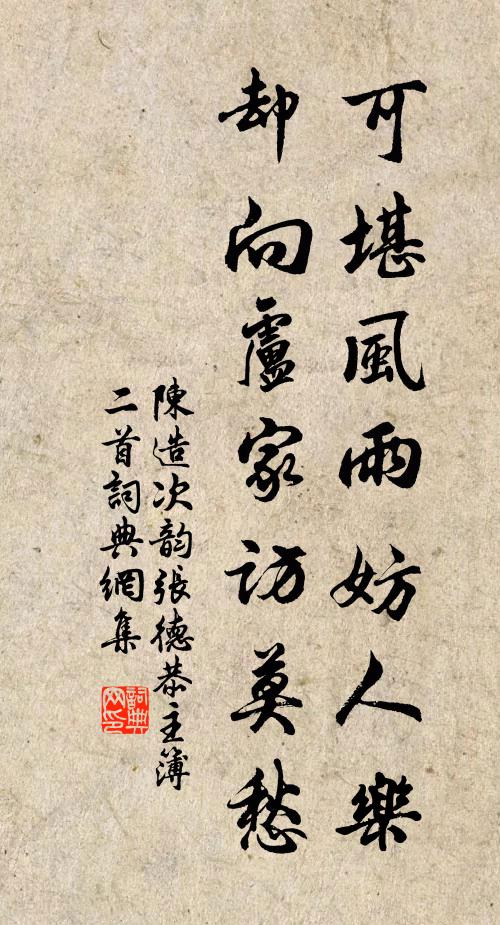 可堪風雨妨人樂
却向盧家訪莫愁
陳造次韵張德恭主簿
二首詞典網集
詞典
网印